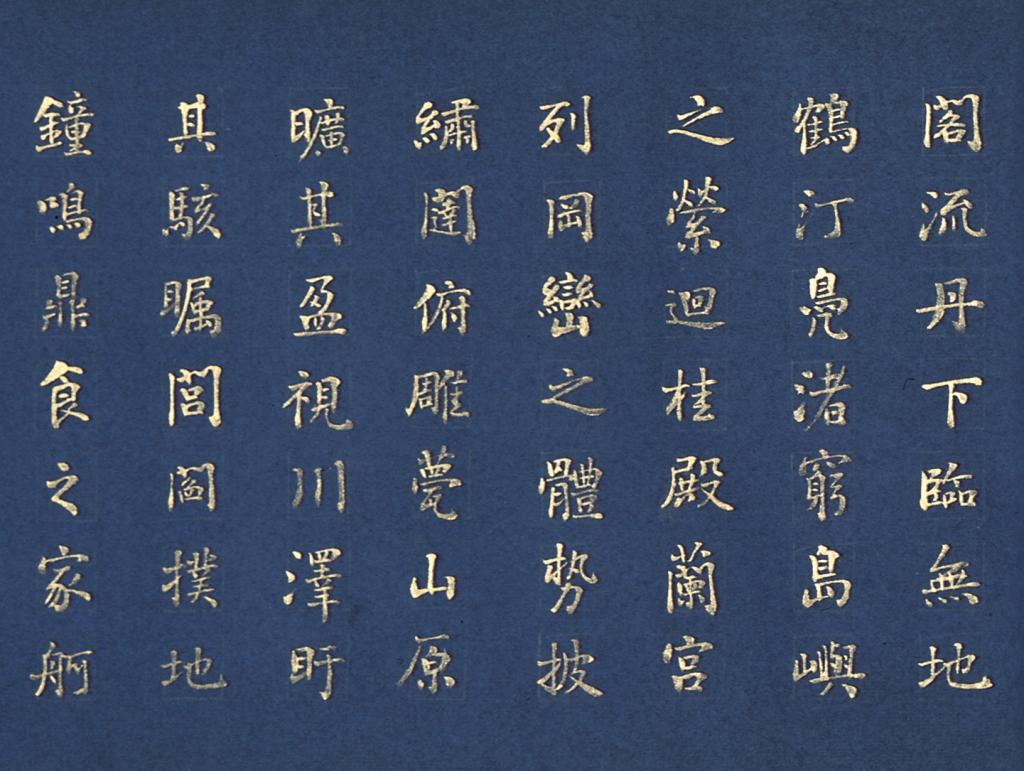 閣流丹下臨無地
鶴汀鳧渚窮島嶼
之縈迴桂殿蘭宮
列岡巒之體勢披
繡闥俯雕甍山原
曠其盈視川澤盱
其駭矚閭閻撲地
鐘鳴鼎食之家舸